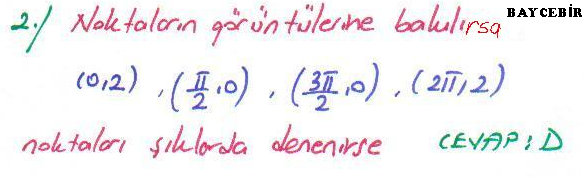 2./ Noktaların görüntülerine bakılırsa BAYCEBİR
(0,2) , (π/2,0) , (3π/2,0) , (2π,2)
noktaları şıklarda denenirse CEVAP: D